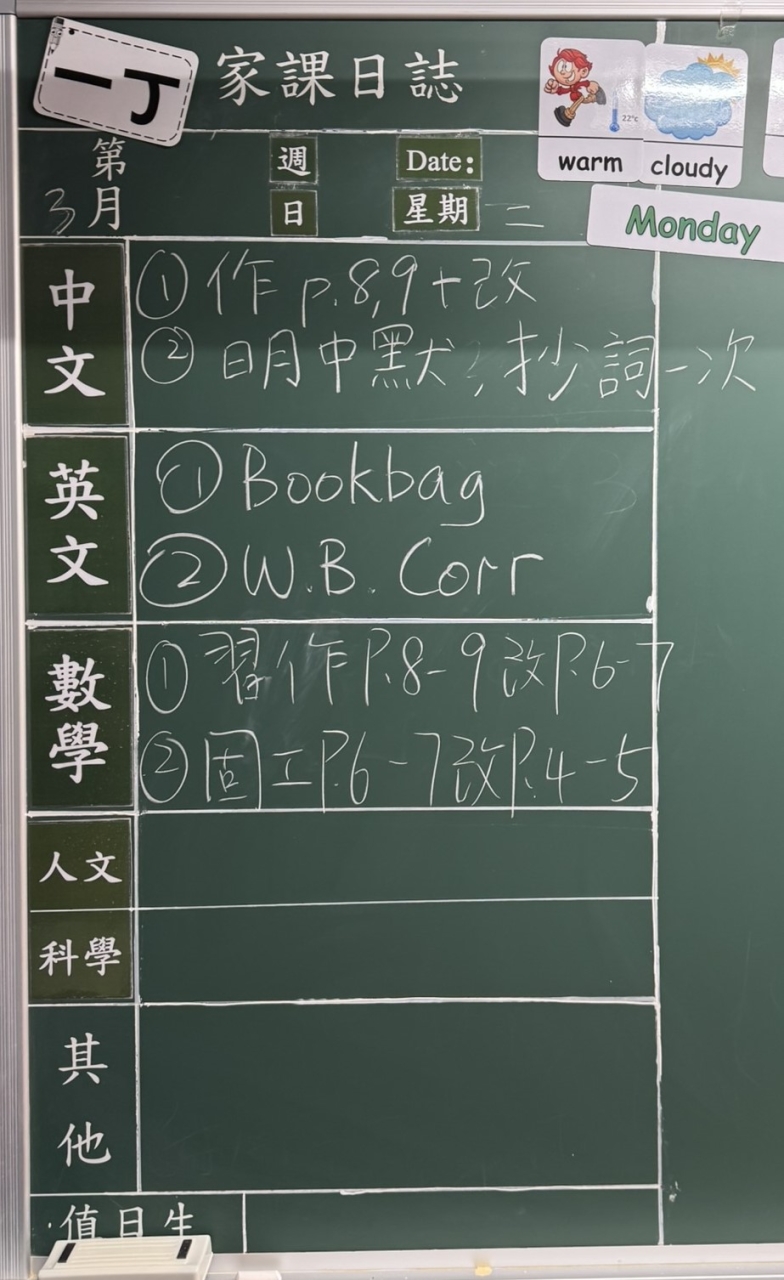 一丁 家課日誌
22°C
warm cloudy
Monday
第 週 Date:
3月 日 星期二
中文
① 作 p.8,9+改
② 明中默;抄詞一次
英文
① Bookbag
② W.B. Corr
數學
① 習作P.8-9改P.6-7
② 固工P.6-7改P.4-5
人文
科學
其他
值日生